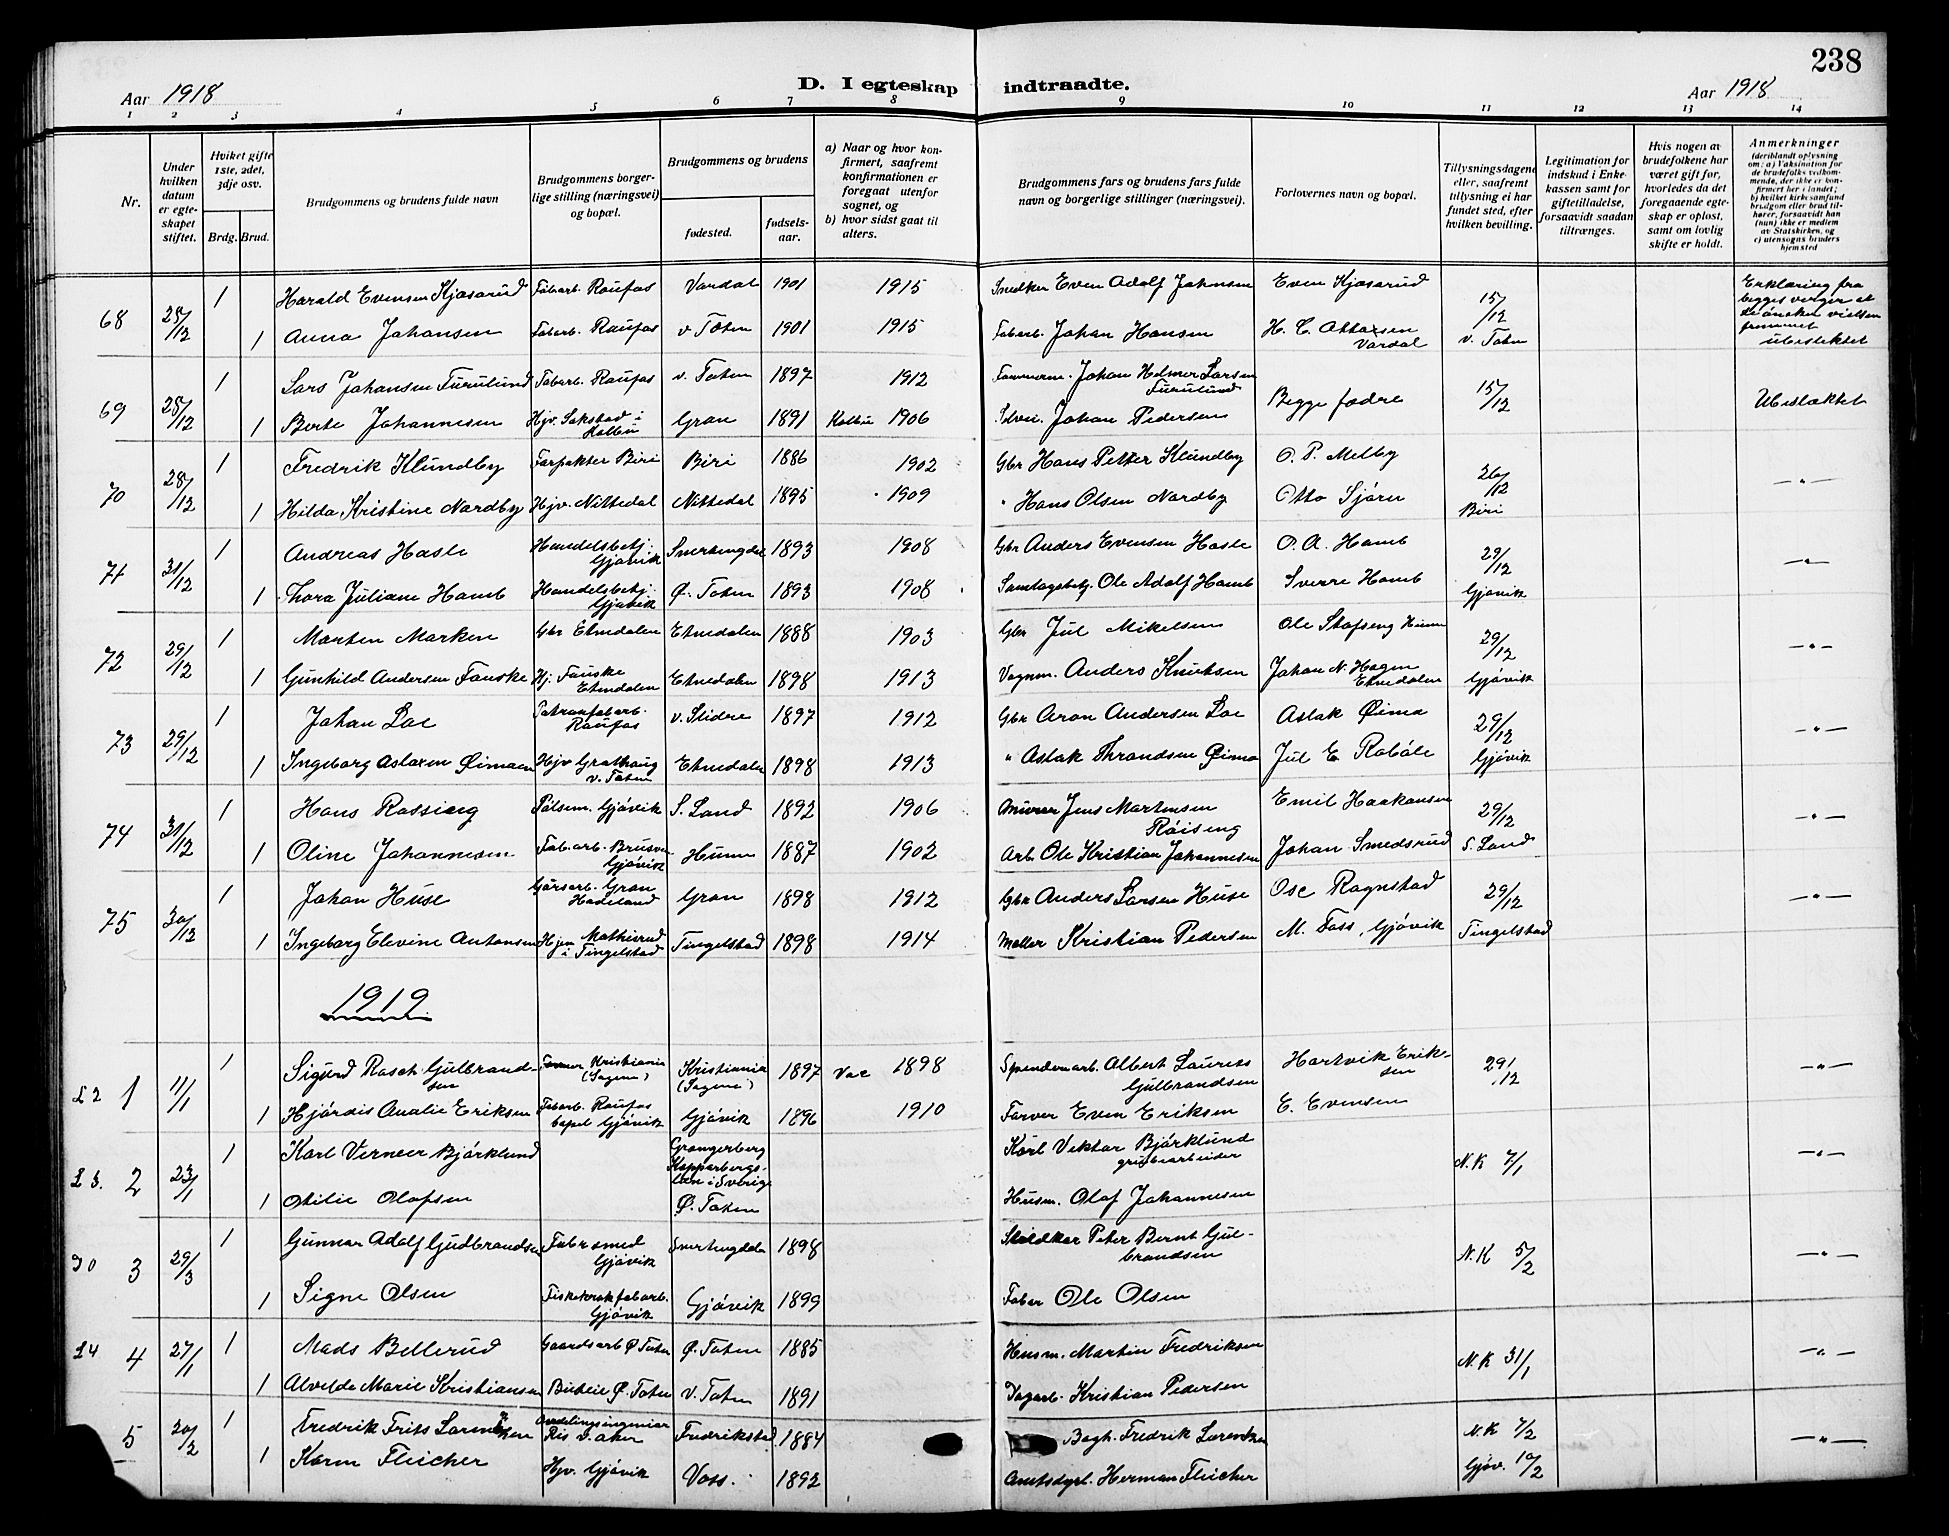 238
Aar 1918
D. I egteskap indtraadte.
Aar 1918
1 2 3 4 5 6 7 8 9 10 11 12 13 14
Nr.
Under hvilken datum er egteskapet stiftet.
Hviket gifte 1ste, 2det, 3dje osv.
Brdg. Brud.
Brudgommens og brudens fulde navn
Brudgommens borgerlige stilling (næringsvei) og bopæl.
Brudgommens og brudens
fødested.
fødselsaar.
a) Naar og hvor konfirmert, saafremt konfirmationen er foregaat utenfor sognet, og
b) hvor sidst gaat til alters.
Brudgommens fars og brudens fars fulde navn og borgerlige stillinger (næringsvei).
Forlovernes navn og bopæl.
Tillysningsdagene eller, saafremt tillysning ei har fundet sted, efter hvilken bevilling.
Legitimation for indskud i Enkekassen samt for giftetilladelse, forsaavidt saadan tiltrænges.
Hvis nogen av brudefolkene har været gift før, hvorledes da det foregaaende egteskap er opløst, samt om lovlig skifte er holdt.
Anmerkninger (deriblandt oplysning om: a) Vaksination for de brudefolks vedkommende, der ikke er konfirmert her i landet; b) hvilket kirkesamfund brudgom eller brud tilhører, forsaavidt han (hun) ikke er medlem av Statskirken, og c) utensogns bruders hjemsted
68 28/12 1 Harald Evensen Kjøsarud Fabarb. Raufos Vardal 1901 1915 Snedker Even Adolf Johnsen Even Kjøsarud 15/12 v. Toten Erklæring fra begges verger at de ønsker vielsen fremmet
1 Anna Johansen Fabarb. Raufos v. Toten 1901 1915 Fabarb. Johan Hansen H. C. Ottosen Vardal ubeslektet
69 28/12 1 Lars Johansen Furulund Fabarb. Raufos v. Toten 1897 1912 Johan Helmer Larsen Furulund Begge fædre 15/12 Ubeslæktet
1 Berte Johannesen Hjv. Sakstad i Kolbu Gran 1891 Kolbu 1906 Johan Pedersen
70 28/12 1 Fredrik Klundby Forpakter Biri Biri 1886 1902 Gbr Hans Petter Klundby O. P. Melby 26/12 Biri — " —
1 Hilda Kristine Nordby Hjv. Nittedal Nittedal 1895 1909 " Hans Olsen Nordby Otto Sjøru
71 31/12 1 Andreas Hasle Handelsbetj. Gjøvik Snertingdal 1893 1908 Gbr Anders Evensen Hasle O. A. Homb 29/12 Gjøvik — " —
1 Thora Juliane Homb Handelsbetj. Gjøvik Ø. Toten 1893 1908 Samlagsbetj. Ole Adolf Homb Sverre Homb
72 29/12 1 Morten Marken Gbr Etnedalen Etnedalen 1888 1903 Gbr Jul Mikelsen Ole Stafseng Hunn 29/12 Gjøvik — " —
1 Gunhild Andersen Fauske Hj. Fauske Etnedalen Etnedalen 1898 1913 Vognm. Anders Knutsen Johan N. Hagen Etnedalen
73 29/12 1 Johan Loe Patronfabarb. Raufos v. Slidre 1897 1912 Gbr Aron Andersen Loe Aslak Øimo 29/12 Gjøvik — " —
1 Ingeborg Aslaxen Øimoen Hjv Grathaug v. Toten Etnedalen 1898 1913 " Aslak Thrandsen Øimo Jul E. Robøle
74 31/12 1 Hans Røssieng Pølsem. Gjøvik S. Land 1892 1906 Murer Jens Martinsen Røiseng Emil Haakonsen 29/12 S. Land — " —
1 Oline Johannesen Fabarb. Brusven Gjøvik Hunn 1887 1902 Arb. Ole Kristian Johannesen Johan Smedsrud
75 30/12 1 Johan Huse Gårsarb. Gran Hadeland Gran 1898 1912 Gbr Anders Larsen Huse Ose Rognstad 29/12 Tingelstad — " —
1 Ingeborg Elevine Antonsen Hjem Mathisrud i Tingelstad Tingelstad 1898 1914 Møller Kristian Pedersen M. Foss, Gjøvik
1919
22 1 11/1 1 Sigurd Rasch Gulbrandsen Kristiania (Sagene) Kristiania (Sagene) 1897 Vor 1898 Spændemarb. Albert Laurits Gulbrandsen Hartvik Eriksen 29/12 — " —
1 Hjørdis Amalie Eriksen Fabarb. Raufos bopel Gjøvik Gjøvik 1896 1910 Farver Even Eriksen E. Evensen
23. 2 23/1 1 Karl Verneer Bjørklund Grangerberg Kopparbergs-len i Sverige Karl Viktor Bjørklund grubearbeider N.K 7/1 — " —
1 Otilie Olafsen Ø. Toten Husm. Olaf Johannesen
30 3 29/3 1 Gunnar Adolf Gudbrandsen Fabrsmed Gjøvik Snertingdal 1898 Peter Bernt Gulbrandsen N.K 5/2 — " —
1 Signe Olsen Fiskekrokfabarb. Gjøvik Gjøvik 1899 Faber Ole Olsen
24 4 27/1 1 Mads Bellerud Gaardsarb Ø Toten Ø. Toten 1885 Husm. Martin Fredriksen N.K 31/1 — " —
1 Alvilde Marie Kristiansen Buteie Ø. Toten v. Toten 1891 Dagarb. Kristian Pedersen
5 20/2 1 Fredrik Frits Lorentzen Avdelingsingeniør Ris v. Aker Fredrikstad 1884 Bogh. Fredrik Lorentzen N.K 7/2 — " —
1 Karin Fleicher Hjv. Gjøvik Voss. 1892 Amtsdyrl. Herman Fleicher Gjøv. 10/2